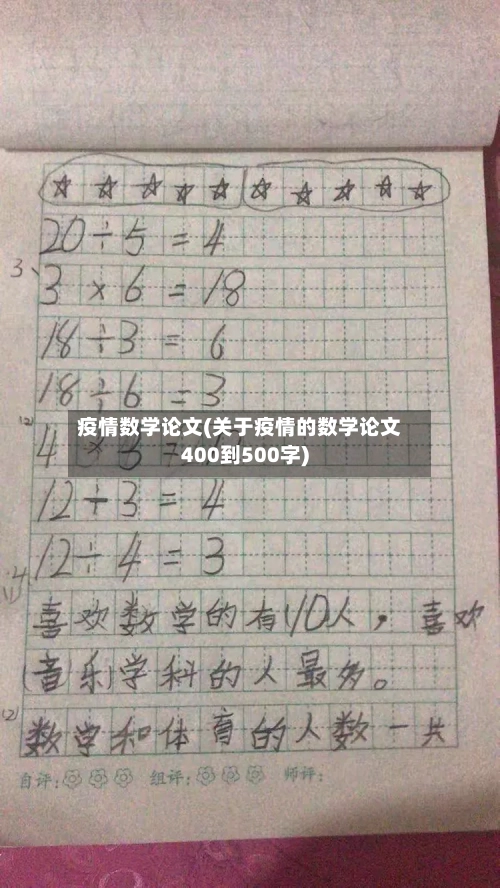 ☆ ☆ ☆ ☆ ☆ ☆ ☆ ☆ ☆ ☆
20÷5=4
3、
3×6=18
18÷3=6
18÷6=3
(2)
疫情数学论文(关于疫情的数学论文
400到500字)
12÷3=4
12÷4=3
4
(1)
喜欢数学的有10人，喜欢
(音乐)学科的人最多。
(2)
数学和体育的人数一共
自评: 组评: 师评: